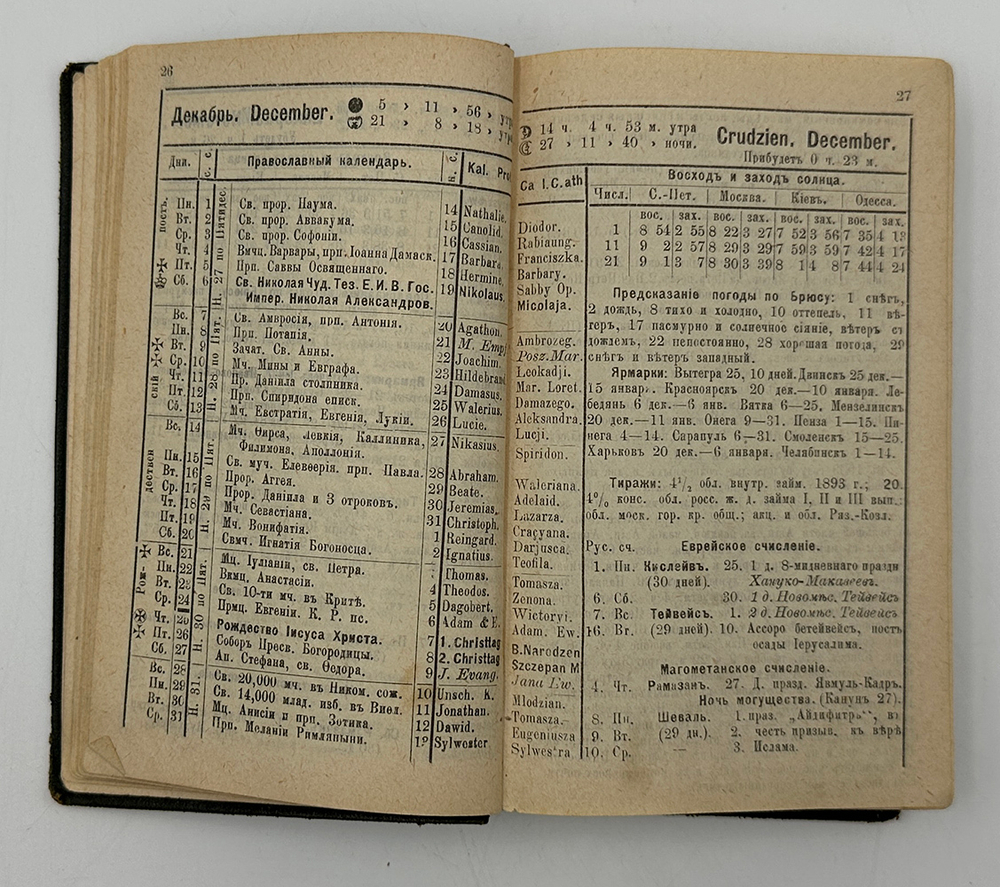 26
Декабрь. December. 5 › 11 › 56 › утр
21 › 8 › 18 › ут
Дни. с. с. Православный календарь. н. с. Kal. Pro
Пн. 1 Св. прор. Наума. 14 Nathalie.
Вт. 2 Св. прор. Аввакума. 15 Canolid.
Ср. 3 Св. прор. Софоніи. 16 Cassian.
Чт. 4 Вмчц. Варвары, прп. Іоанна Дамаск. 17 Barbara
Пт. 5 Прп. Саввы Освященнаго. 18 Hermine,
Сб. 6 Св. Николая Чуд. Тез. Е. И. В. Гос. 19 Nikolaus.
Импер. Николая Александров.
Вс. 7 Св. Амвросія, прп. Антонія. 20 Agathon.
Пн. 8 Прп. Потапія. 21 M. Empf
Вт. 9 Зачат. Св. Анны. 22 Joachim.
Ср. 10 Мч. Мины и Евграфа. 23 Hildebrand
Чт. 11 Пр. Даніила столпника. 24 Damasus.
Пт. 12 Прп. Спиридона еписк. 25 Walerius.
Сб. 13 Мч. Евстратія, Евгенія, Лукіи. 26 Lucie.
Вс. 14 Мч. Ѳирса, Левкія, Каллиника, 27 Nikasius.
Филимона, Аполлонія.
Пн. 15 Св. муч. Елевѳерія. прп. Павла. 28 Abraham.
Вт. 16 Прор. Аггея. 29 Beate.
Ср. 17 Прор. Даніила и 3 отроковъ. 30 Jeremias.
Чт. 18 Мч. Севастіана. 31 Christoph.
Пт. 19 Мч. Вонифатія. 1 Reingard.
Сб. 20 Свмч. Игнатія Богоносца. 2 Ignatius.
Вс. 21 Мц. Іуліаніи, св. Петра. 3 Thomas.
Пн. 22 Вкмц. Анастасіи. 4 Theodos.
Вт. 23 Св. 10-ти мч. въ Критѣ. 5 Dagobert.
Ср. 24 Прмц. Евгеніи. К. Р. пс. 6 Adam & E.
Чт. 25 Рождество Іисуса Христа. 7 1. Christtag
Пт. 26 Соборъ Пресв. Богородицы. 8 2. Christtag
Сб. 27 Ап. Стефана, св. Ѳедора. 9 J. Evang.
Вс. 28 Св. 20,000 мч. въ Ником. сож. 10 Unsch. K.
Пн. 29 Св. 14,000 млад. изб. въ Виѳл. 11 Jonathan.
Вт. 30 Мц. Анисіи и прп. Зотика. 12 Dawid.
Ср. 31 Прп. Меланіи Римляныни. 13 Sylwester
постъ.
Н. 27 по Пятидес.
скій
Н. 28 по Пят.
дествен
Н. 29 по Пят.
Ром-
Н. 30 по Пят.
Н. 31.
27
14 ч. 4 ч. 53 м. утра
27 › 11 › 40 › ночи.
Crudzien. December.
Прибудетъ 0 ч. 23 м.
Ca l. C. ath
Diodor.
Rabiaung.
Franciszka.
Barbary.
Sabby Op.
Micolaja.
Ambrozeg.
Posz. Mar.
Leokadji.
Mar. Loret.
Damazego.
Aleksandra.
Lucji.
Spiridon.
Waleriana.
Adelaid.
Lazarza.
Gracyana.
Darjusca.
Teofila.
Tomasza.
Zenona.
Wictoryi.
Adam. Ew.
B. Narodzen
Szczepan M
Jana Ew.
Mlodzian.
Tomasza.
Eugeniusza
Sylwestra.
Восходъ и заходъ солнца.
Числ. С.-Пет. Москва. Кіевъ. Одесса.
вос. зах. вос. зах. вос. зах. вос. зах.
1 8 54 2 55 8 22 3 27 7 52 3 56 7 35 4 13
11 9 2 2 57 8 29 3 29 7 59 3 59 7 42 4 17
21 9 1 3 7 8 30 3 39 8 1 4 8 7 44 4 24
Предсказаніе погоды по Брюсу: 1 снѣгъ,
2 дождь, 8 тихо и холодно, 10 оттепель, 11 вѣ-
геръ, 17 пасмурно и солнечное сіяніе, вѣтеръ съ
дождемъ, 22 непостоянно, 28 хорошая погода, 29
снѣгъ и вѣтеръ западный.
Ярмарки: Вытегра 25, 10 дней. Двинскъ 25 дек.—
15 январ. Красноярскъ 20 дек.—10 января. Ле-
бедянь 6 дек.—6 янв. Вятка 6—25. Мензелинскъ
20 дек.—11 янв. Онега 9—31. Пенза 1—15. Пи-
нега 4—14. Сарапуль 6—31. Смоленскъ 15—25.
Харьковъ 20 дек.—6 января. Челябинскъ 1—14.
Тиражи: 4½ обл. внутр. займ. 1893 г.; 20.
4% конс. обл. росс. ж. д. займа I, II и III вып.;
обл. моск. гор. кр. общ.; акц. и обл. Ряз.-Козл.
Рус. сч. Еврейское счисленіе.
1. Пн. Кислейвъ. 25. 1 д. 8-мидневнаго праздн
(30 дней). Хануко-Макавеевъ.
6. Сб. 30. 1 д. Новомѣс. Тейвейсъ
7. Вс. Тейвейсъ. 1. 2 д. Новомѣс. Тейвейсъ
16. Вт. (29 дней). 10. Ассоро бетейвейсъ, постъ
осады Іерусалима.
Магометанское счисленіе.
4. Чт. Рамазанъ. 27. Д. празд. Явмуль-Кадръ.
Ночь могущества. (Канунъ 27).
8. Пн. Шеваль. 1. праз. „Айдифитръ“, въ
9. Вт. (29 дн.). 2. честь призыв. къ вѣрѣ
10. Ср. — 3. Ислама.